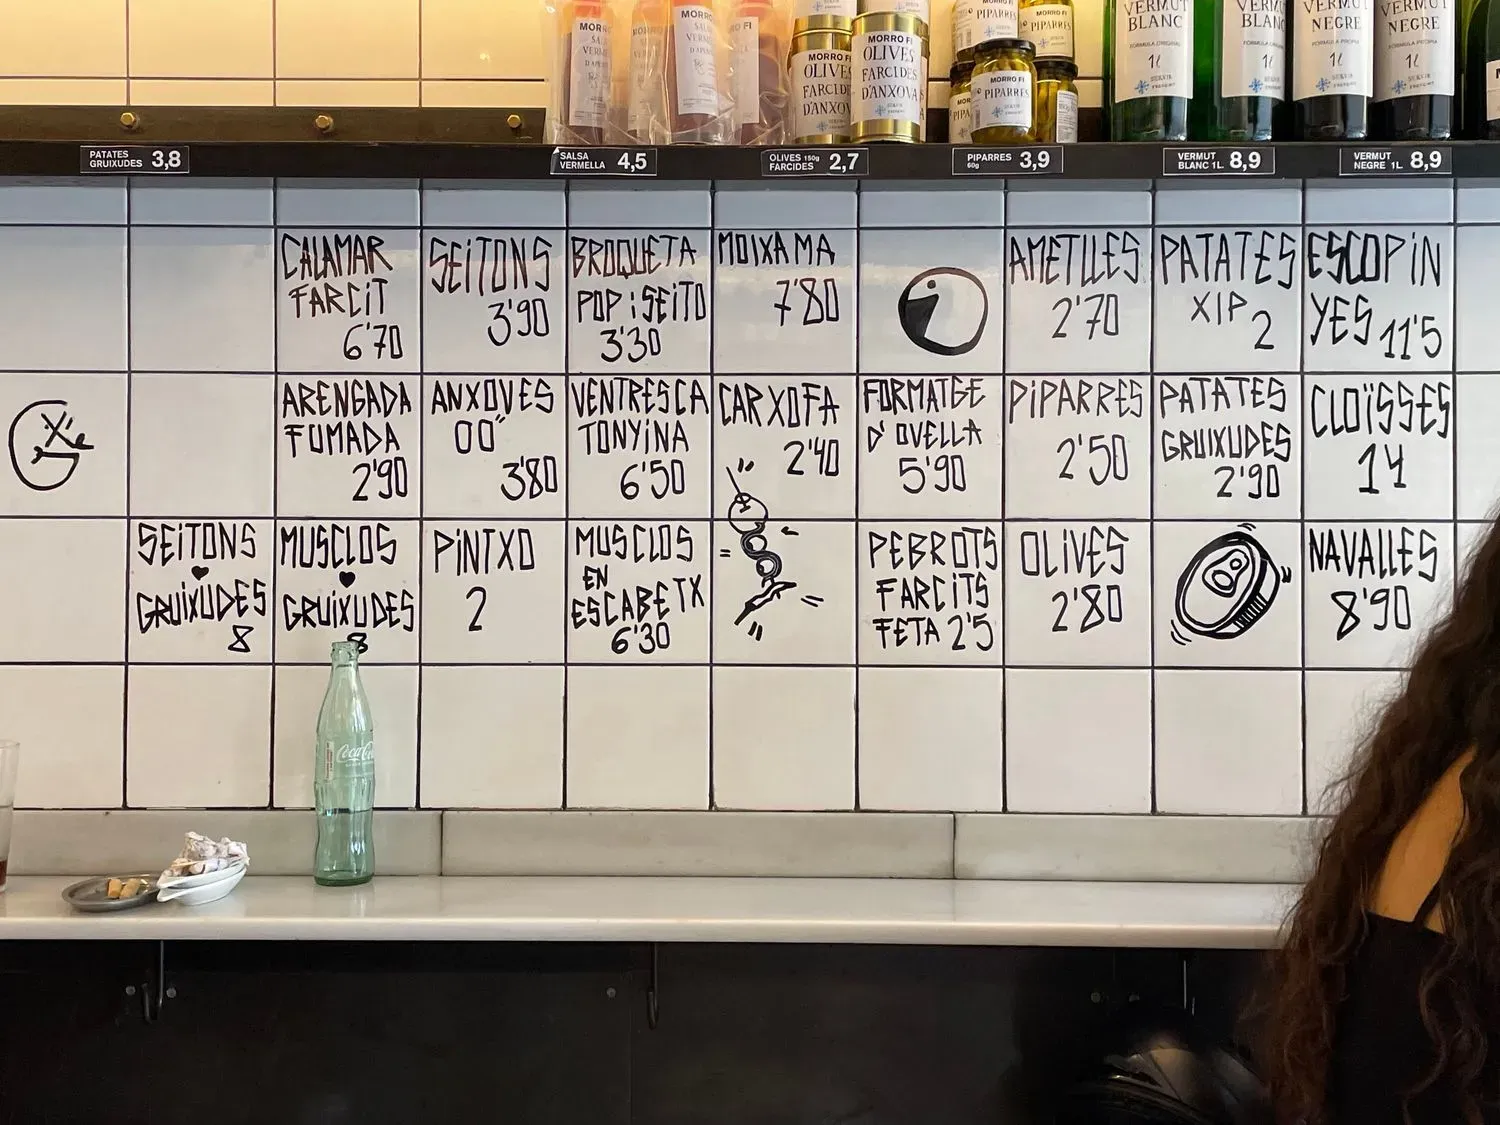 MORRO FI
SALSA
VERMELLA
MORRO FI
OLIVES
FARCIDES
D'ANXOVA
MORRO FI
OLIVES
FARCIDES
D'ANXOVA
MORRO FI
PIPARRES
MORRO FI
PIPARRES
MORRO FI
PIPARRES
VERMUT
BLANC
FORMULA ORIGINAL
1L
VERMUT
BLANC
1L
VERMUT
NEGRE
FORMULA PROPIA
1L
VERMUT
NEGRE
FORMULA PROPIA
1L
PATATES
GRUIXUDES 3,8
SALSA
VERMELLA 4,5
OLIVES 150g
FARCIDES 2,7
PIPARRES
60g 3,9
VERMUT
BLANC 1L. 8,9
VERMUT
NEGRE 1L 8,9
CALAMAR
FARCIT
6'70
SEITONS
3'90
BROQUETA
POP i SEITO
3'30
MOIXAMA
7'80
AMETLLES
2'70
PATATES
XIP 2
ESCOPIN
YES 11'5
ARENGADA
FUMADA
2'90
ANXOVES
00"
3'80
VENTRESCA
TONYINA
6'50
CARXOFA
2'40
FORMATGE
D'OVELLA
5'90
PIPARRES
2'50
PATATES
GRUIXUDES
2'90
CLOÏSSES
14
SEITONS
♥
GRUIXUDES
8
MUSCLOS
♥
GRUIXUDES
8
PINTXO
2
MUSCLOS
EN
ESCABETX
6'30
PEBROTS
FARCITS
FETA 2'5
OLIVES
2'80
NAVALLES
8'90
Coca-Cola